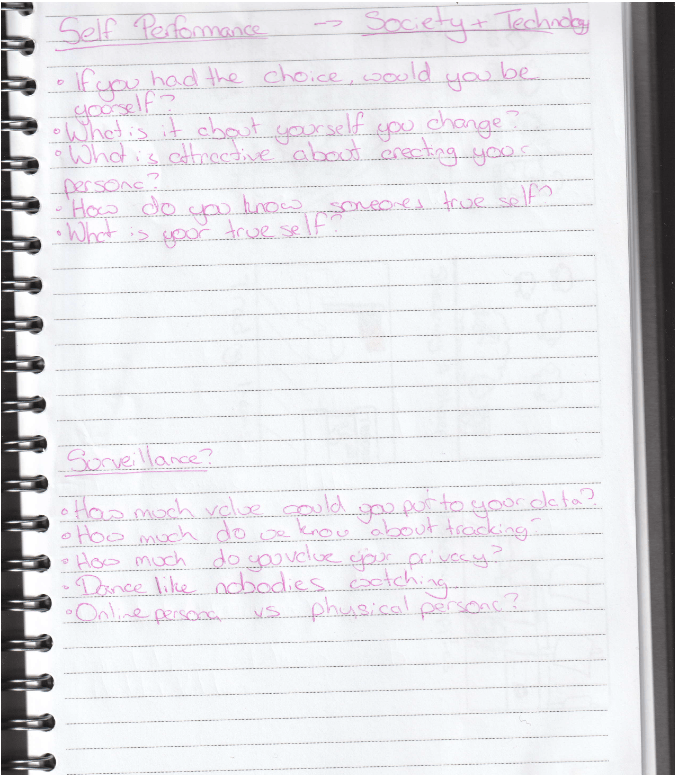 Self Performance → Society + Technology
• If you had the choice, would you be
yourself?
• What is it about yourself you change?
• What is attractive about creating your
persona?
• How do you know someones true self?
• What is your true self?
Surveillance?
• How much value could you put to your data?
• How much do we know about tracking?
• How much do you value your privacy?
• Dance like nobodies watching
• Online persona vs physical persona?